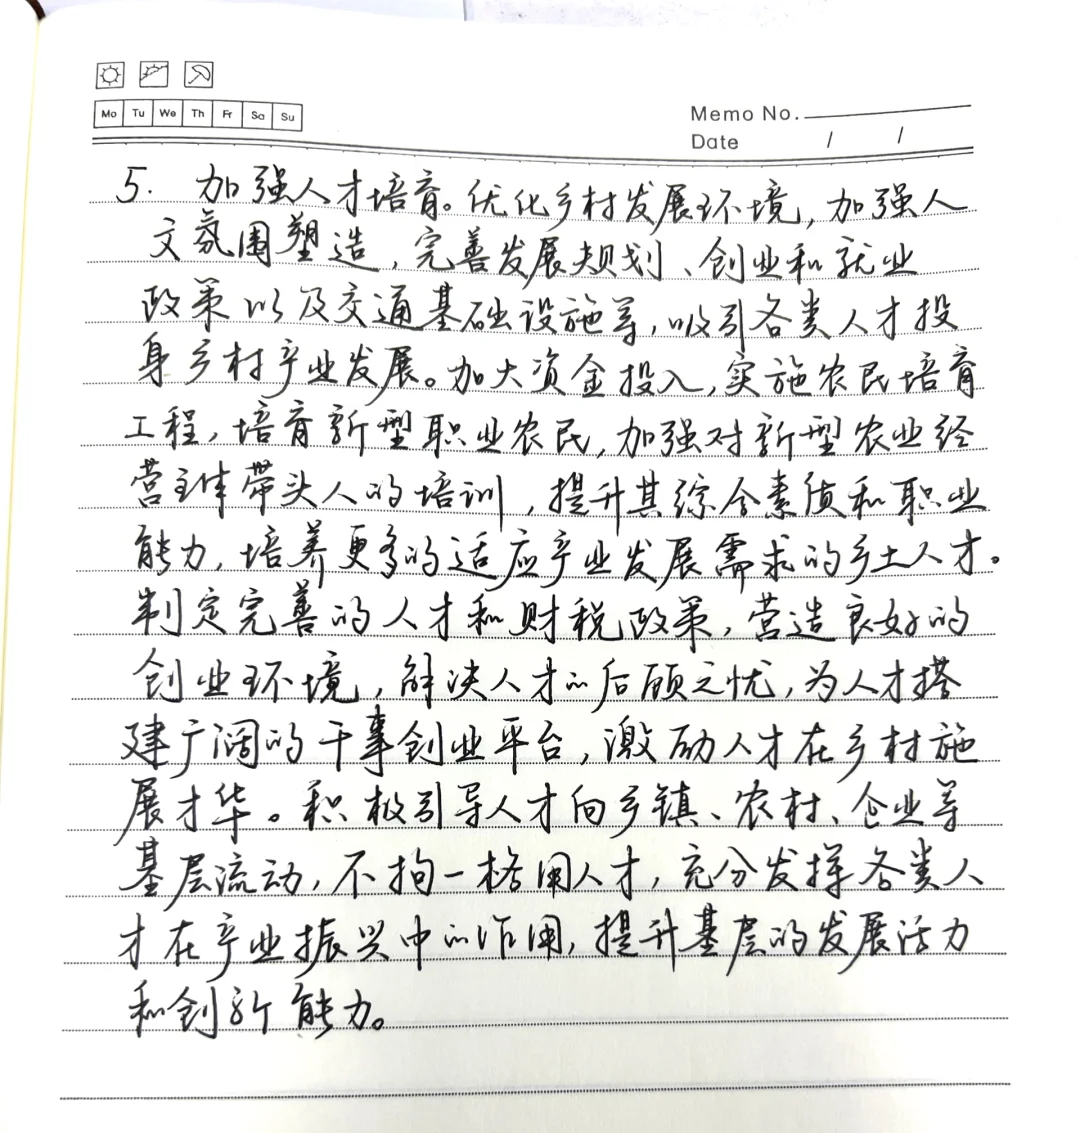 Mo Tu We Th Fr Sa Su
Memo No.
Date / /
5. 加强人才培育。优化乡村发展环境,加强人
文氛围塑造,完善发展规划、创业和就业
政策以及交通基础设施等,吸引各类人才投
身乡村产业发展。加大资金投入,实施农民培育
工程,培育新型职业农民,加强对新型农业经
营主体带头人的培训,提升其综合素质和职业
能力,培养更多的适应产业发展需求的乡土人才。
制定完善的人才和财税政策,营造良好的
创业环境,解决人才的后顾之忧,为人才搭
建广阔的干事创业平台,激励人才在乡村施
展才华。积极引导人才向乡镇、农村、企业等
基层流动,不拘一格用人才,充分发挥各类人
才在产业振兴中的作用,提升基层的发展活力
和创新能力。